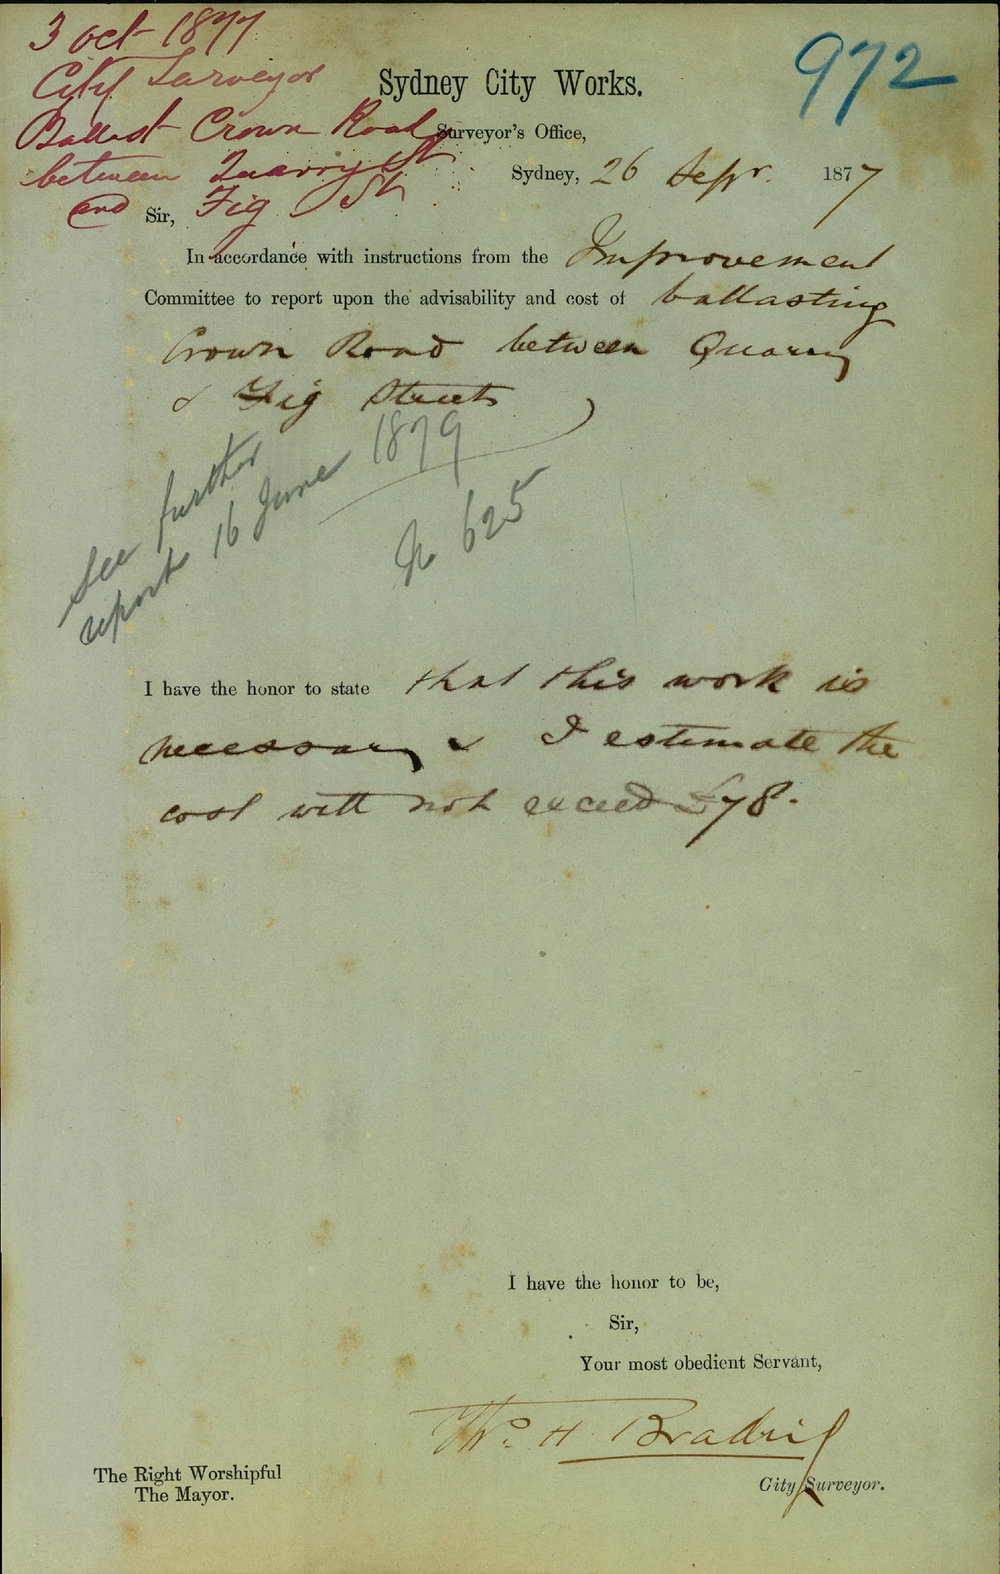 3 Oct 1877
City Surveyor
Ballast Crown Road
between Quarry St
and Fig St
972
Sydney City Works.
Surveyor's Office,
Sydney, 26 Sepr. 1877
Sir,
In accordance with instructions from the Improvement
Committee to report upon the advisability and cost of ballasting
Crown Road between Quarry
& Fig Streets
See further
report 16 June 1879
No 625
I have the honor to state that this work is
necessary & I estimate the
cost will not exceed £78.
I have the honor to be,
Sir,
Your most obedient Servant,
Thos. H Bradridge
City Surveyor.
The Right Worshipful
The Mayor.